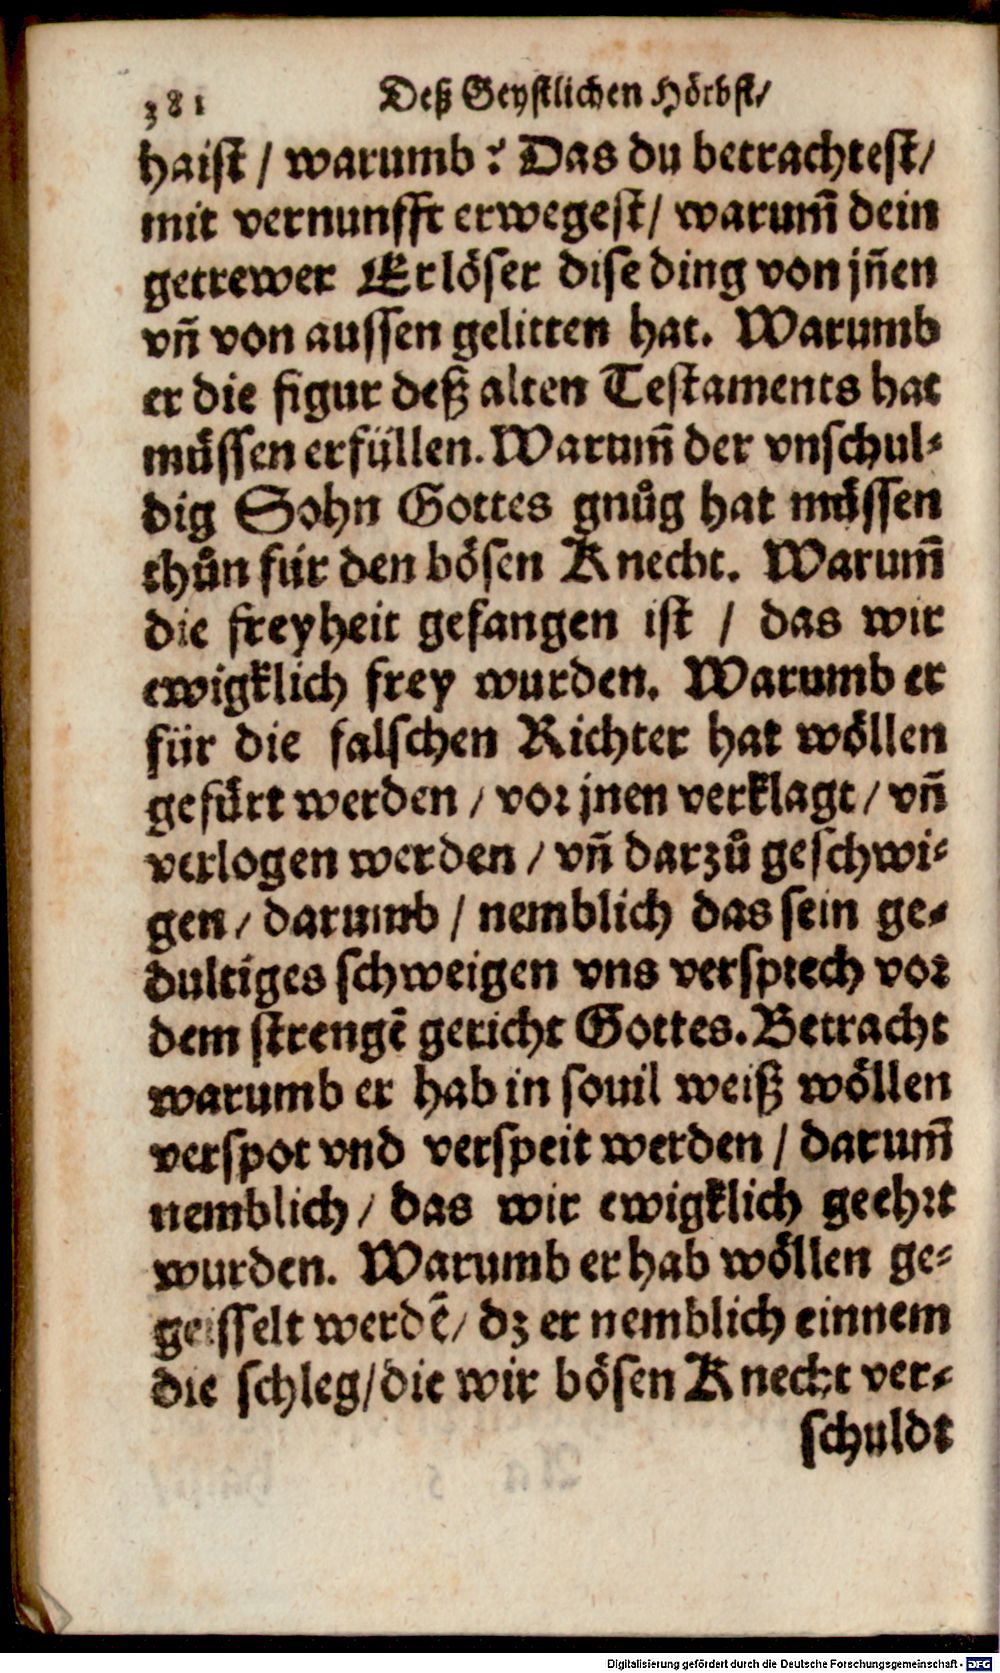 381 Deß Geystlichen Hörbst/
haist / warumb? Das du betrachtest/
mit vernunfft erwegest/ warum̃ dein
getrewer Erlöser dise ding von jñen
vñ von aussen gelitten hat. Warumb
er die figur deß alten Testaments hat
müssen erfüllen. Warum̃ der vnschul-
dig Sohn Gottes gnůg hat müssen
thůn für den bösen Knecht. Warum̃
die freyheit gefangen ist / das wir
ewigklich frey wurden. Warumb er
für die falschen Richter hat wöllen
gefürt werden / vor jnen verklagt / vñ
verlogen werden / vñ darzů geschwi-
gen / darumb / nemblich das sein ge-
dultiges schweigen vns versprech vor
dem strengẽ gericht Gottes. Betracht
warumb er hab in souil weiß wöllen
verspot vnd verspeit werden / darum̃
nemblich / das wir ewigklich geehrt
wurden. Warumb er hab wöllen ge-
geisselt werdẽ / dz er nemblich einnem
die schleg/die wir bösen Knecht ver-
schuldt
Digitalisierung gefördert durch die Deutsche Forschungsgemeinschaft - DFG